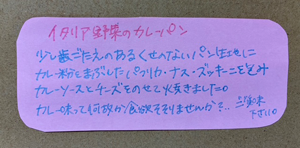 イタリア野菜のカレーパン
少し歯ごたえのあるくせのないパン生地に
カレー粉をまぶしたパプリカ・ナス・ズッキーニを包み
カレーソースとチーズをのせて焼きました。
カレー味って何故か食欲そそりませんか？… ご賞味
下さい。